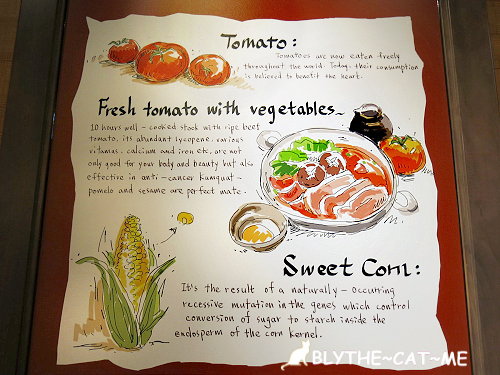 Tomato:
Tomatoes are now eaten freely
throughout the world. Today, their consumption
is believed to benefit the heart.
Fresh tomato with vegetables~
10 hours well - cooked stock with ripe beef
tomato, its abundant lycopene, various
vitamas, calcium and iron etc. are not
only good for your body and beauty but also
effective in anti - cancer kumquat -
pomelo and sesame are perfect mate.
Sweet Corn:
It's the result of a naturally - occurring
recessive mutation in the genes which control
conversion of sugar to starch inside the
endosperm of the corn kernel.
BLYTHE~CAT~ME